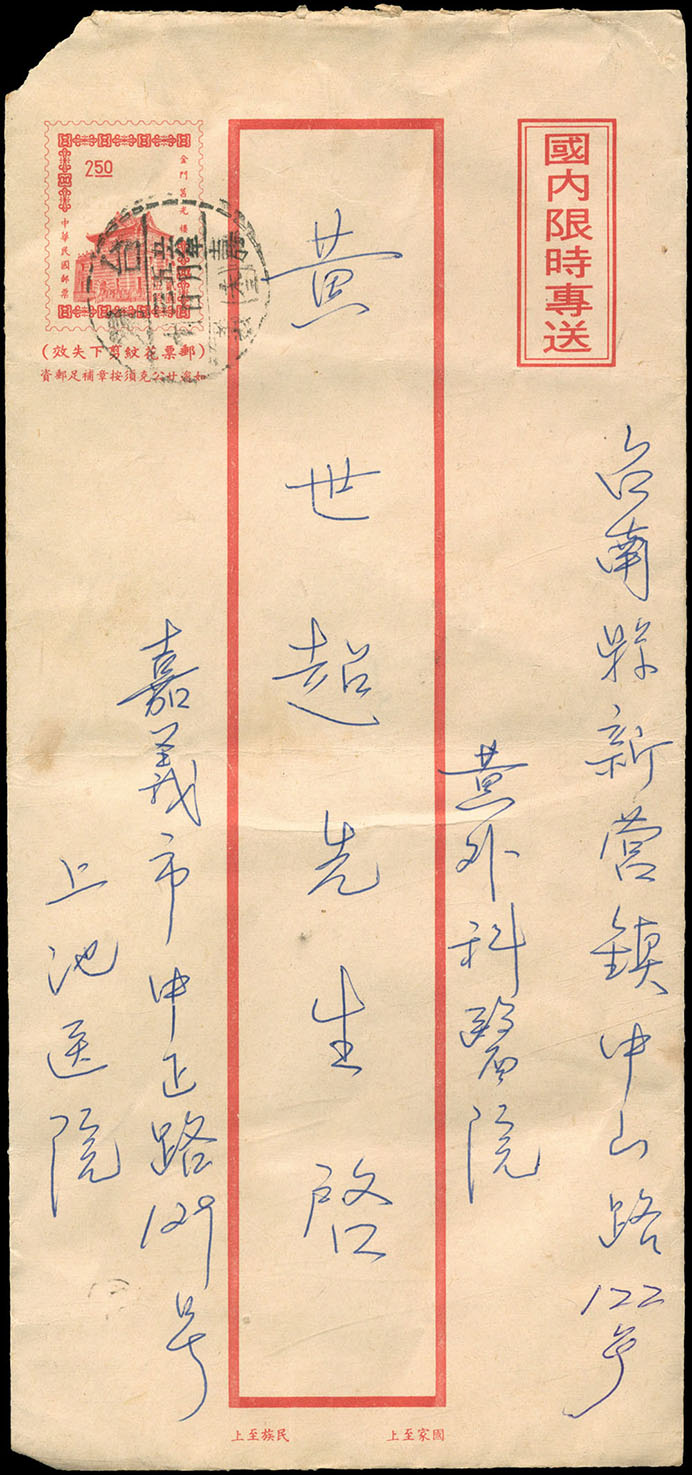 國內限時專送
台南縣新营鎮中山路122号
黄外科醫院
黄世超先生啓
嘉義市中正路129号
上池医院
250
金門莒光樓
中華民國郵票
(郵票花紋剪下失效)
公克須按章補足郵資
國家至上
民族至上